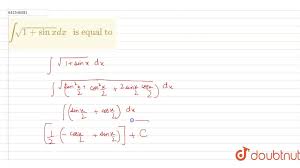 ∫√1 + sin xdx is equal to
∫ √1+sinx dx
∫ √(sin²x/2 + cos²x/2 + 2sinx/2 cosx/2) dx
∫ (sinx/2 + cosx/2) dx
[1/2 (-cosx/2 + sinx/2)] + C
doubtnut